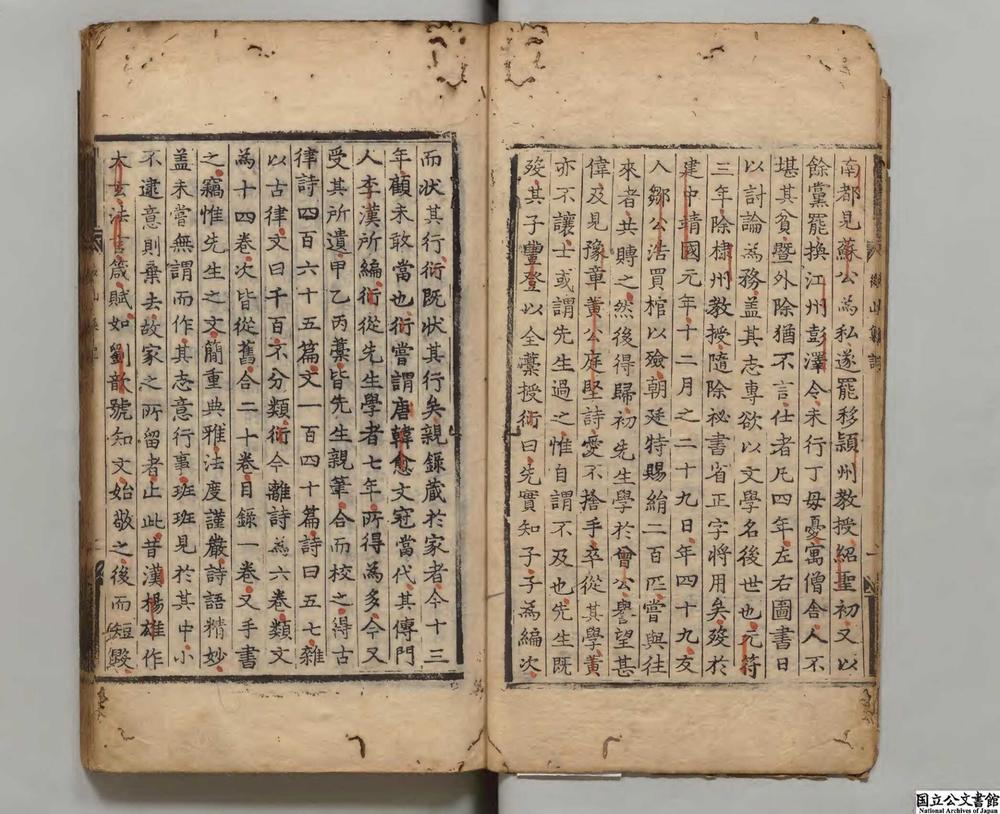 南都見蘇公為私遂罷移頴州教授紹聖初又以
餘黨罷換江州彭澤令未行丁母憂寓僧舎人不
堪其貧暨外除猶不言仕者凡四年左右圖書日
以討論為務盖其志專欲以文學名後世也元符
三年除棣州教授隨除秘書省正字將用矣歿於
建中靖國元年十二月之二十九日年四十九友
人鄒公浩買棺以殮朝廷特賜絹二百匹嘗與往
來者共賻之然後得歸初先生學於曾公譽望甚
偉及見豫章黄公庭堅詩愛不捨手卒從其學黄
亦不讓士或謂先生過之惟自謂不及也先生既
歿其子豐登以全藁授衍曰先實知子子為編次
而状其行衍既状其行矣親錄蔵於家者今十三
年顧未敢當也衍嘗謂唐韓愈文冠當代其傳門
人李漢所編衍從先生學者七年所得為多今又
受其所遺甲乙丙藁皆先生親筆合而校之得古
律詩四百六十五篇文一百四十篇詩曰五七雜
以古律文曰千百不分類衍今離詩為六卷類文
為十四卷次皆從舊合二十卷目錄一卷又手書
之竊惟先生之文簡重典雅法度謹嚴詩語精妙
盖未嘗無謂而作其志意行事班班見於其中小
不逮意則棄去故家之所留者止此昔漢楊雄作
太玄法言箴賦如劉歆號知文始敬之後而短毀
國立公文書館
National Archives of Japan